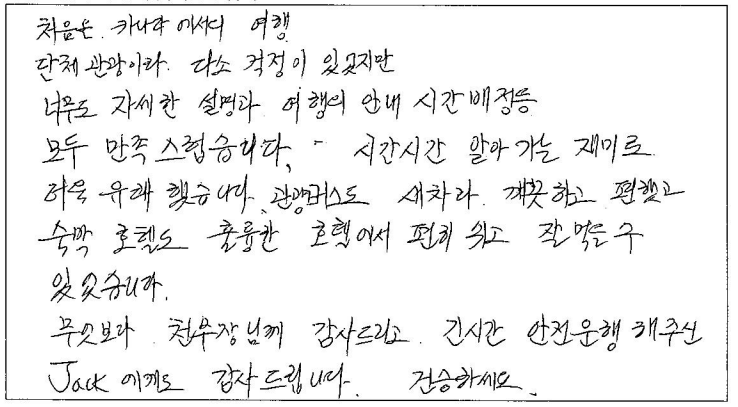 처음은 카나다에서의 여행
단체관광이라. 다소 걱정이 있었지만
너무도 자세한 설명과 여행의 안내 시간배정등
모두 만족 스럽습니다. 시간시간 알아 가는 재미로
더욱 유쾌 했습니다. 관광버스도 새차라. 깨끗하고 편했고
숙박 호텔도 훌륭한 호텔에서 편히 쉬고 잘먹을 수
있었습니다.
무엇보다 천부장님께 감사드리고. 긴시간 안전운행 해주신
Jack 에게도 감사드립니다. 건승하세요.